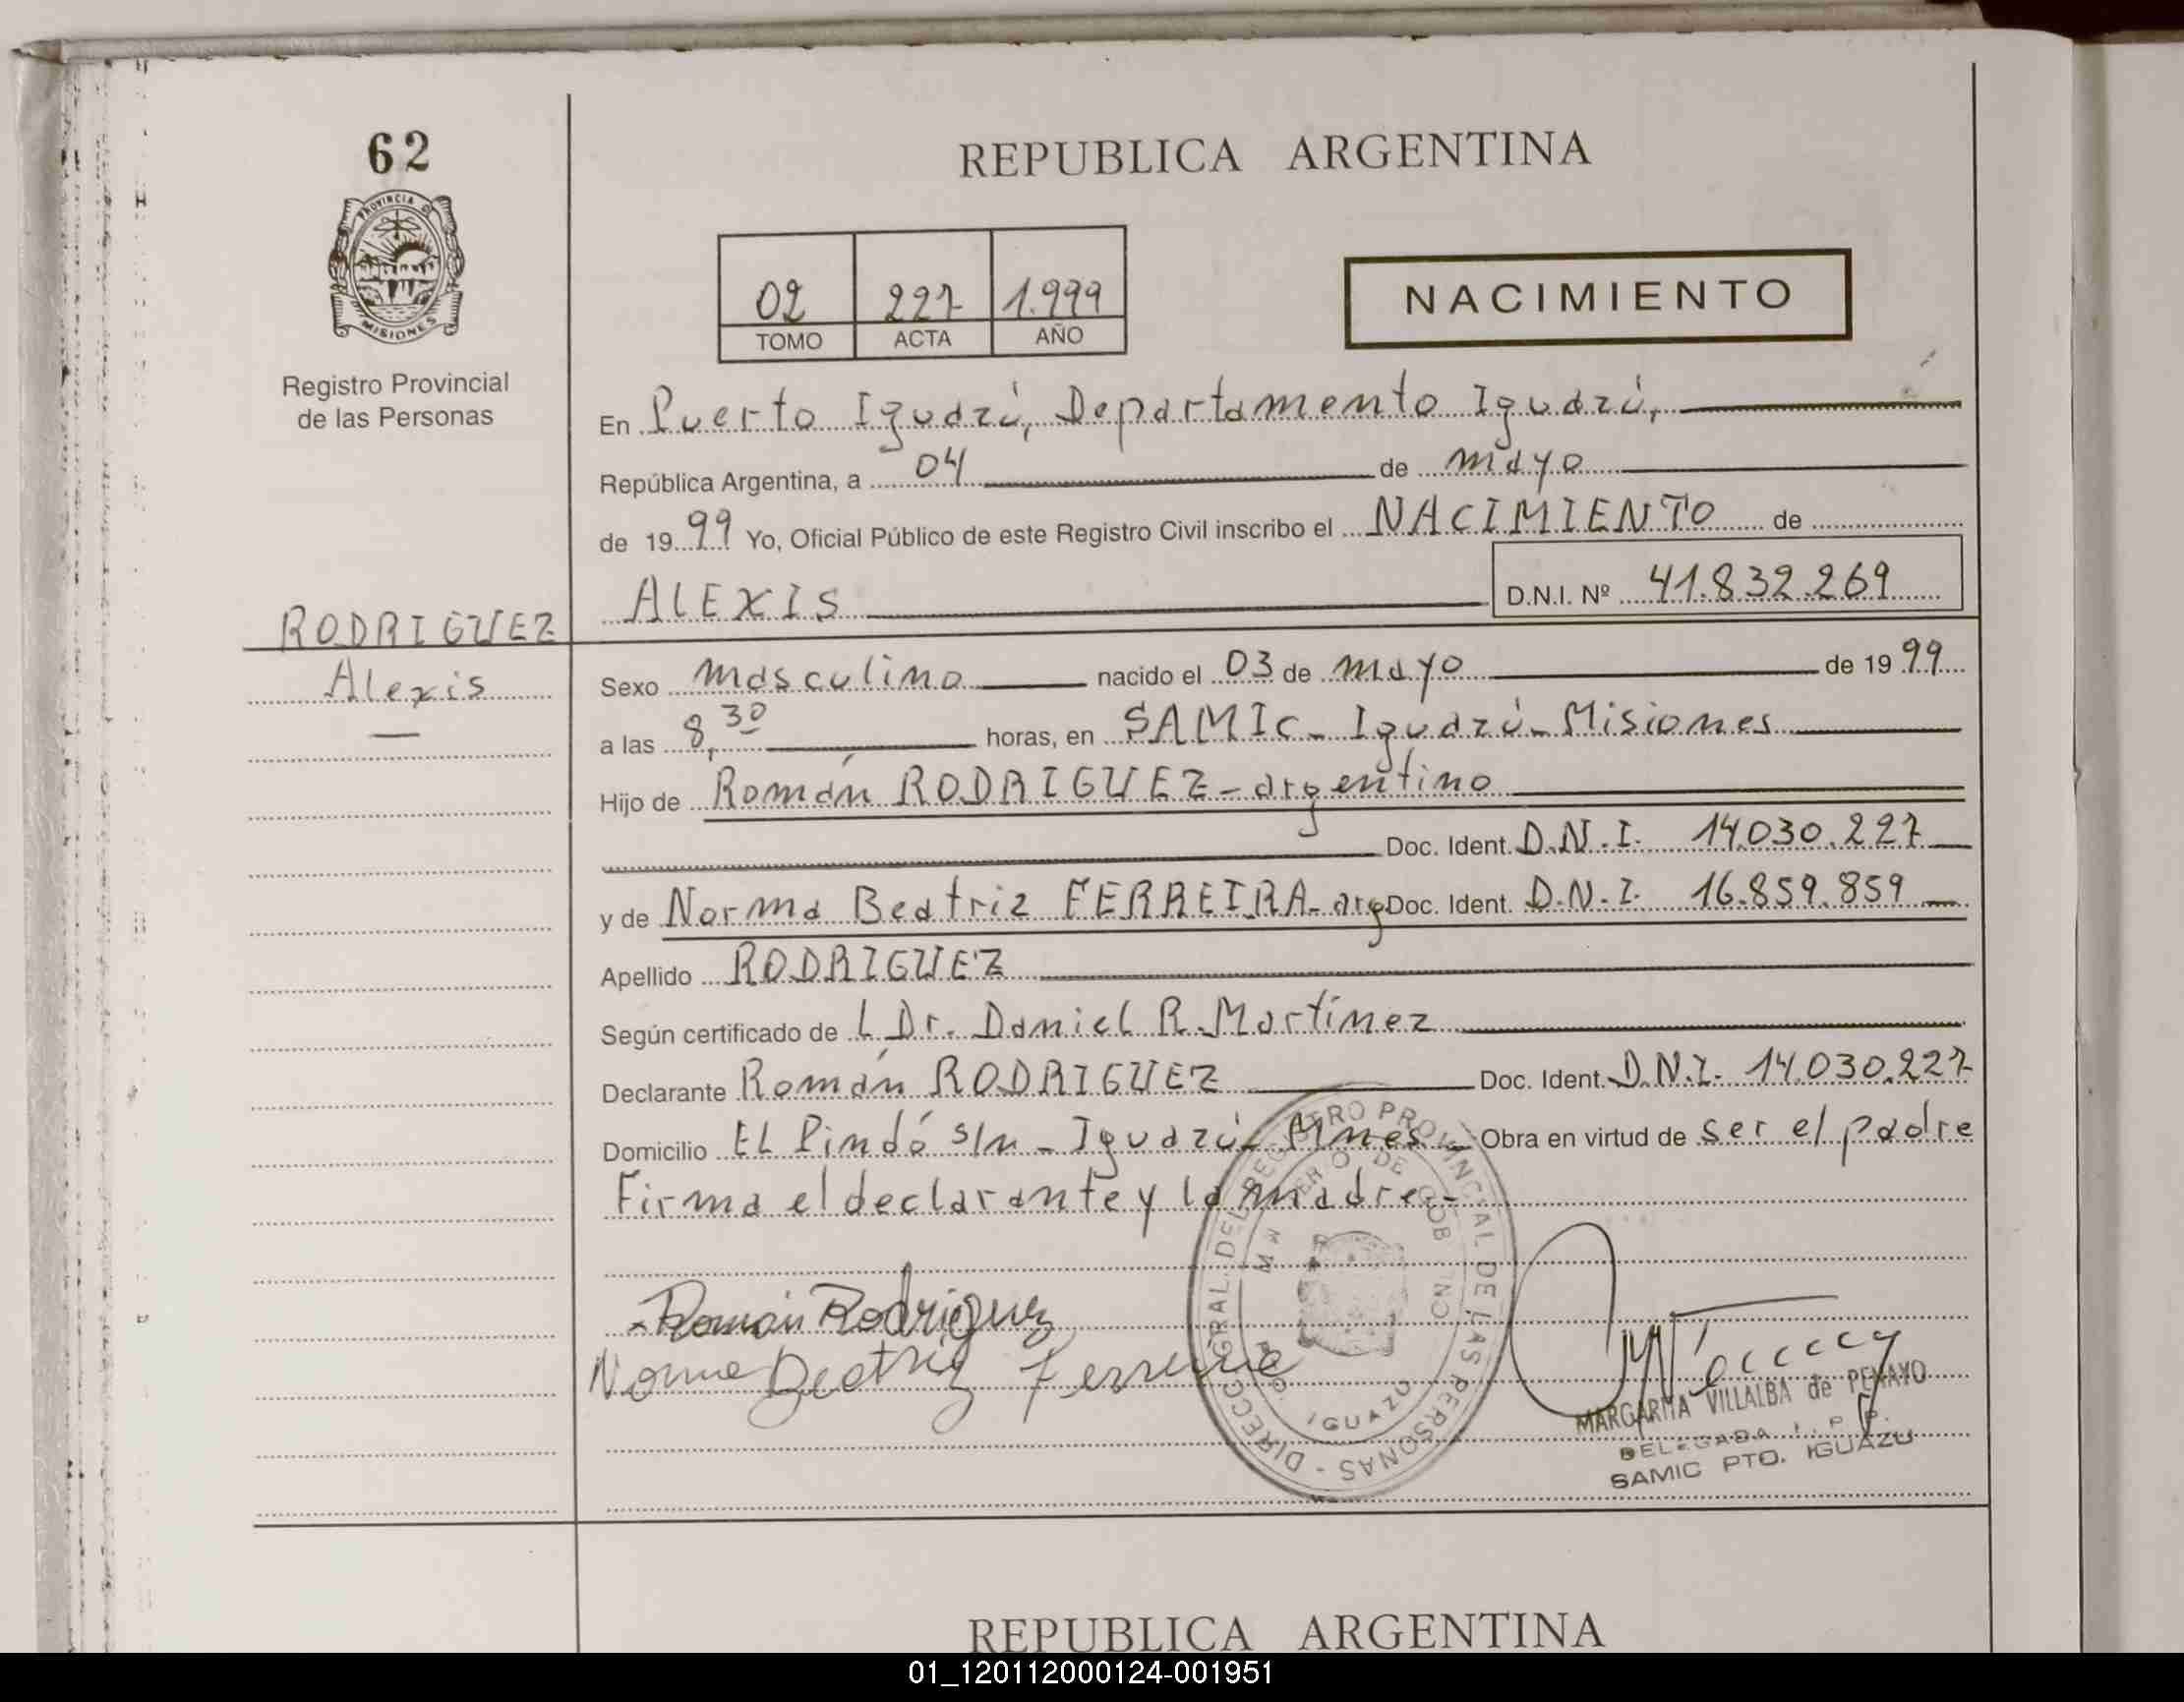 62
PROVINCIA D
MISIONES
Registro Provincial
de las Personas
RODRIGUEZ
Alexis
REPUBLICA ARGENTINA
02 227 1.999
TOMO ACTA AÑO
NACIMIENTO
En Puerto Iguazú, Departamento Iguazú,
República Argentina, a 04 de mayo
de 1999 Yo, Oficial Público de este Registro Civil inscribo el NACIMIENTO de
ALEXIS D.N.I. Nº 41.832.269
Sexo masculino nacido el 03 de mayo de 1999
a las 8,30 horas, en SAMIC- Iguazú- Misiones
Hijo de Román RODRIGUEZ- argentino
Doc. Ident. D.N.I. 14.030.227
y de Norma Beatriz FERREIRA- arg Doc. Ident. D.N.I. 16.859.859
Apellido RODRIGUEZ
Según certificado de L Dr. Daniel R. Martínez
Declarante Román RODRIGUEZ Doc. Ident. D.N.I. 14.030.227
Domicilio EL Pindó s/n - Iguazú- Mnes- Obra en virtud de ser el padre
Firma el declarante y la madre.-
Román Rodriguez
Norma Beatriz Ferreira
DIRECC. GRAL. DEL REGISTRO PROVINCIAL DE LAS PERSONAS -
IGUAZU
MARGARITA VILLALBA de PENAYO
DELEGADA
SAMIC PTO. IGUAZU
REPUBLICA ARGENTINA
01_120112000124-001951